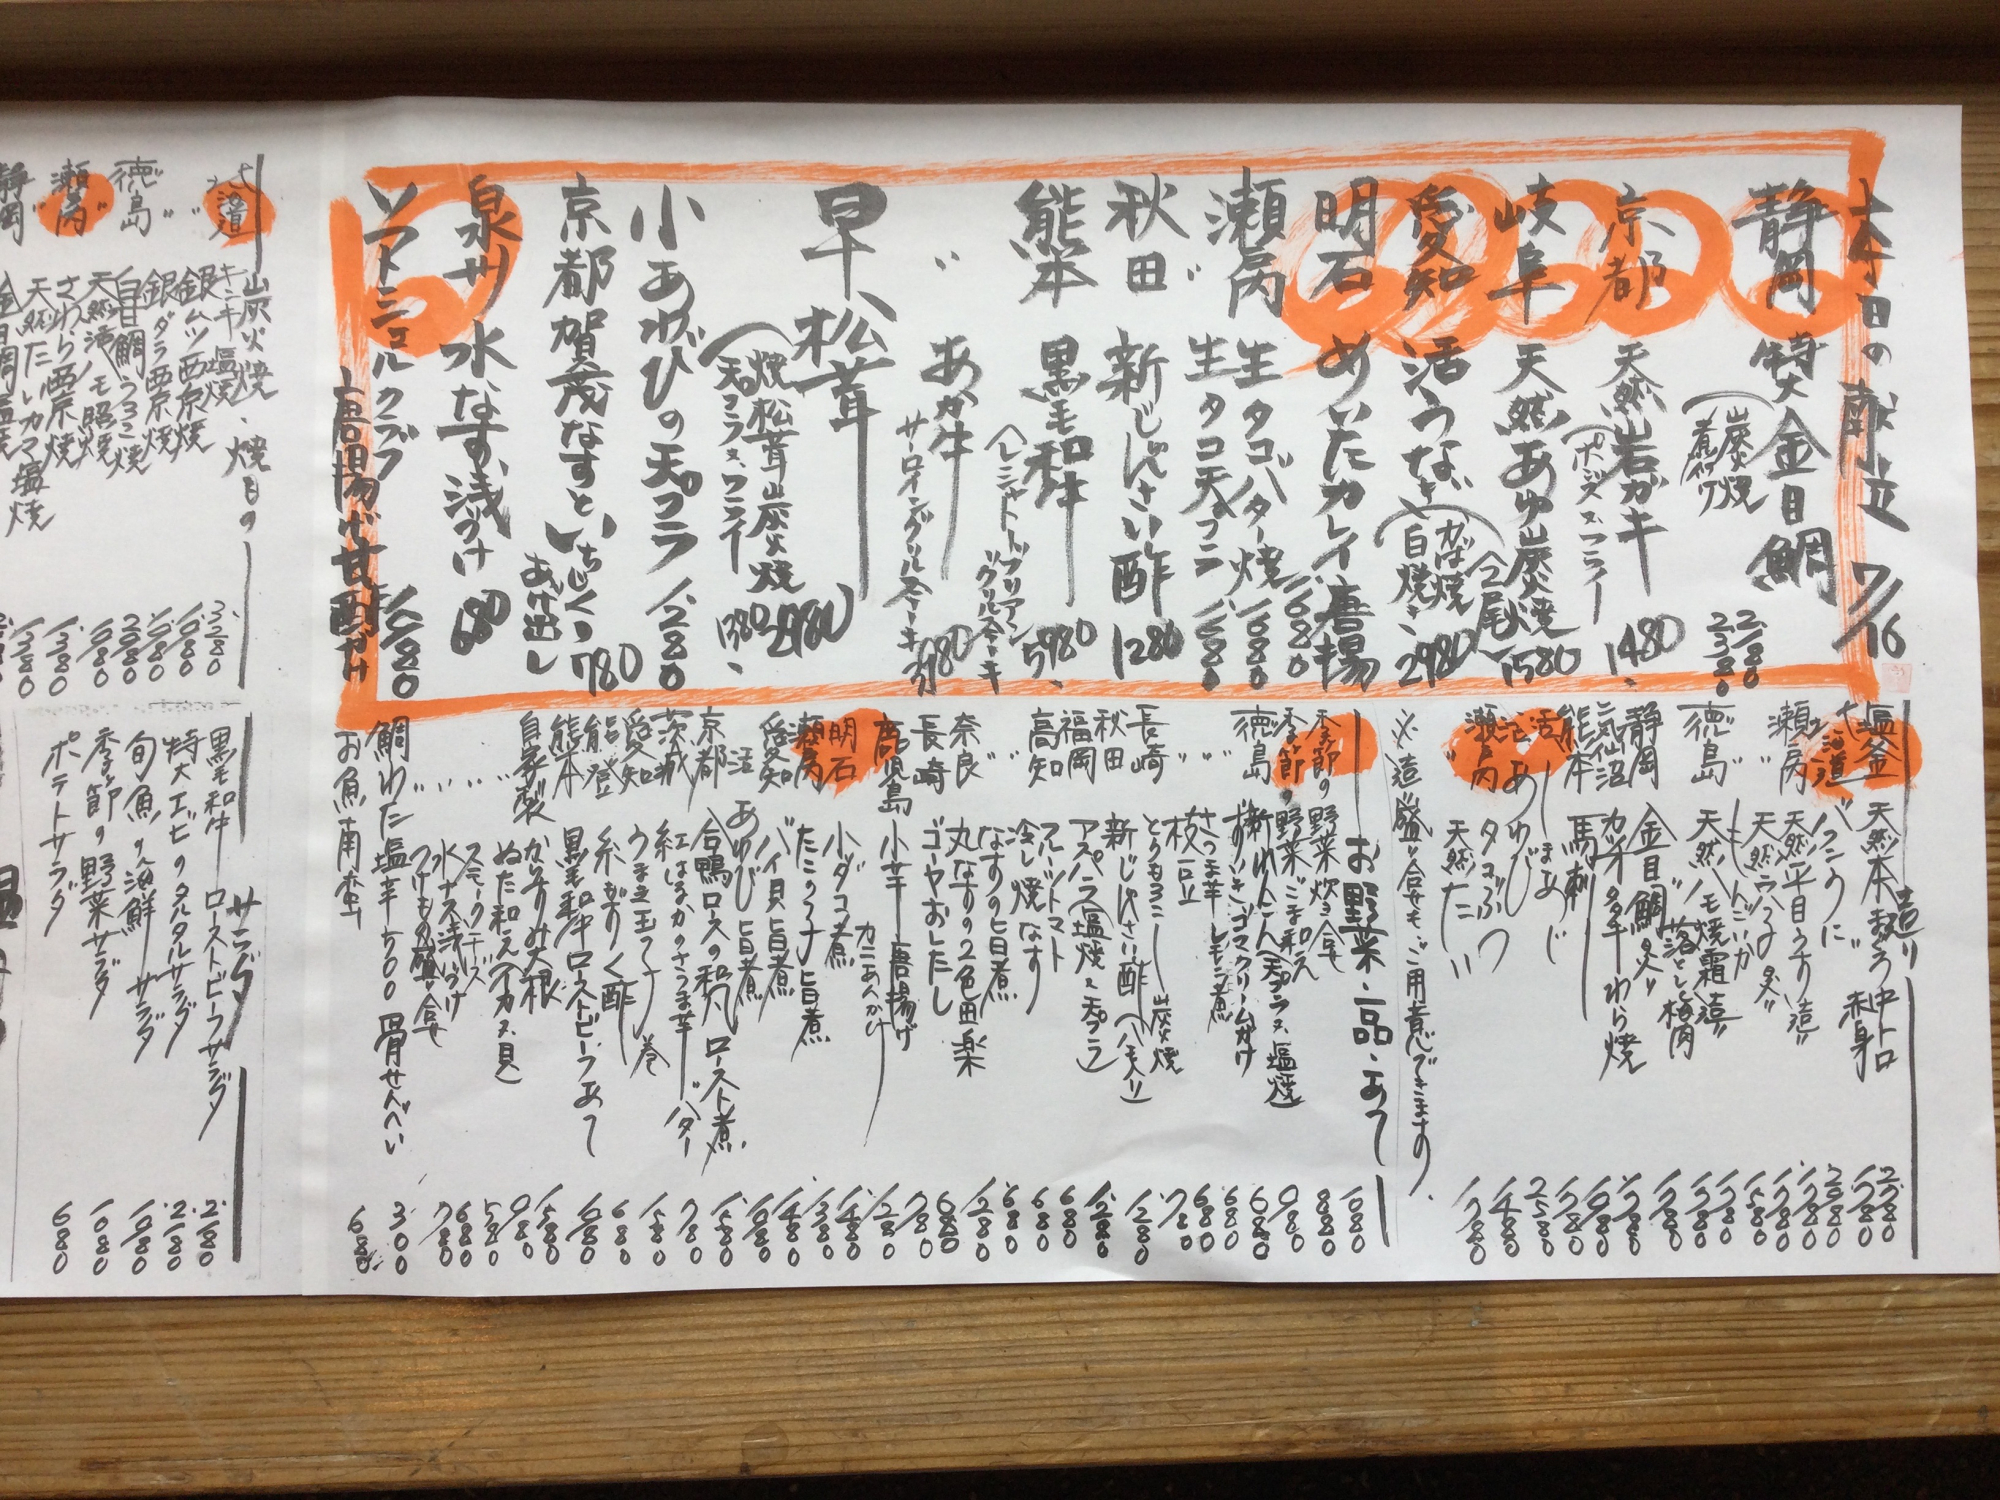 本日の献立 7/16
静岡 特大金目鯛
炭火焼 2180
煮付け 2380
京都 天然岩ガキ 1480
(ポン酢又フライ)
岐阜 天然あゆ炭火焼 1580
(2尾)
愛知 活うなぎ 2980
(かば焼
白焼き)
明石 めいたカレイ唐揚 1680
瀬戸内 生タコバター焼 1680
〃 生タコ天プラ 1680
秋田 新じゅんさい酢 1280
熊本 黒毛和牛 5980
(シャトーブリアン
グリルステーキ
〃 あか牛 3980
サーロイングリルステーキ
早松茸
焼松茸炭火焼 2980
天プラ又フライ 1380
小あわびの天プラ 1280
京都賀茂なすといちじくの 780
あげ出し
泉州水なす浅づけ 680
ソフトシェルクラブ 1080
唐揚げ甘酢かけ
造り
塩釜 天然本まぐろ中トロ 2780
赤身 1780
北海道 バフンうに 2080
瀬戸内 天然平目うす造り 1780
〃 天然うなぎ炙り
徳島 天然ハモ焼霜造り
落とし梅肉
静岡 金目鯛炙り
気仙沼 カツオ塩たたきわら焼
熊本 馬刺
活しまあじ
活あわび 2580
瀬戸内 タコぶつ 1480
〃 天然たい 1780
※造り盛り合せもご用意できます。
お野菜・一品・あて
季節の野菜炊き合せ 1080
季節の野菜ごま和え 880
徳島 新れんこん(天プラ又塩焼) 980
〃 ずいきゴマクリームがけ 680
〃 さつま芋レモン煮 680
〃 枝豆
長崎 とうもろこし炭火焼 780
秋田 新じゅんさい酢(ハモ入り) 1280
福岡 アスパラ(塩焼又天プラ) 1280
高知 フルーツトマト 680
〃 冷し焼なす 680
〃 なすの旨煮 680
奈良 丸なすの2色田楽 1280
長崎 ゴーヤおしたし 680
鹿児島 小芋唐揚げ 780
カニあんかけ 1280
明石 小ダコ煮 1480
瀬戸内 たこの子旨煮 1380
愛知 バイ貝旨煮 1480
活あわび旨煮
京都 合鴨ロースの和風ロースト煮 1580
茨城 紅はるかのさつま芋バター 780
愛知 うまき玉子巻 1580
能登 糸もずく酢 680
熊本 黒毛和牛ローストビーフあて
自家製 からすみ大根 1580
〃 ぬた和え(イカ又貝) 980
〃 スモークチーズ 580
〃 水ナス浅づけ 680
〃 つけもの盛り合せ 780
鯛わた塩辛500 骨せんべい 300
お魚南蛮 680
炭火焼・焼もの
北海道 キンキ塩焼 3280
〃 銀ムツ西京焼 1080
〃 銀ダラ西京焼 1080
徳島 甘鯛うろこ焼 2080
〃 天然活ハモ照焼 1080
瀬戸内 さわら西京焼 1380
〃 天然たいカマ塩焼 1380
静岡 金目鯛塩焼
サラダ
黒毛和牛ローストビーフサラダ 2180
特大エビのタルタルサラダ 2180
旬魚の海鮮サラダ 1080
季節の野菜サラダ 1080
ポテトサラダ 680